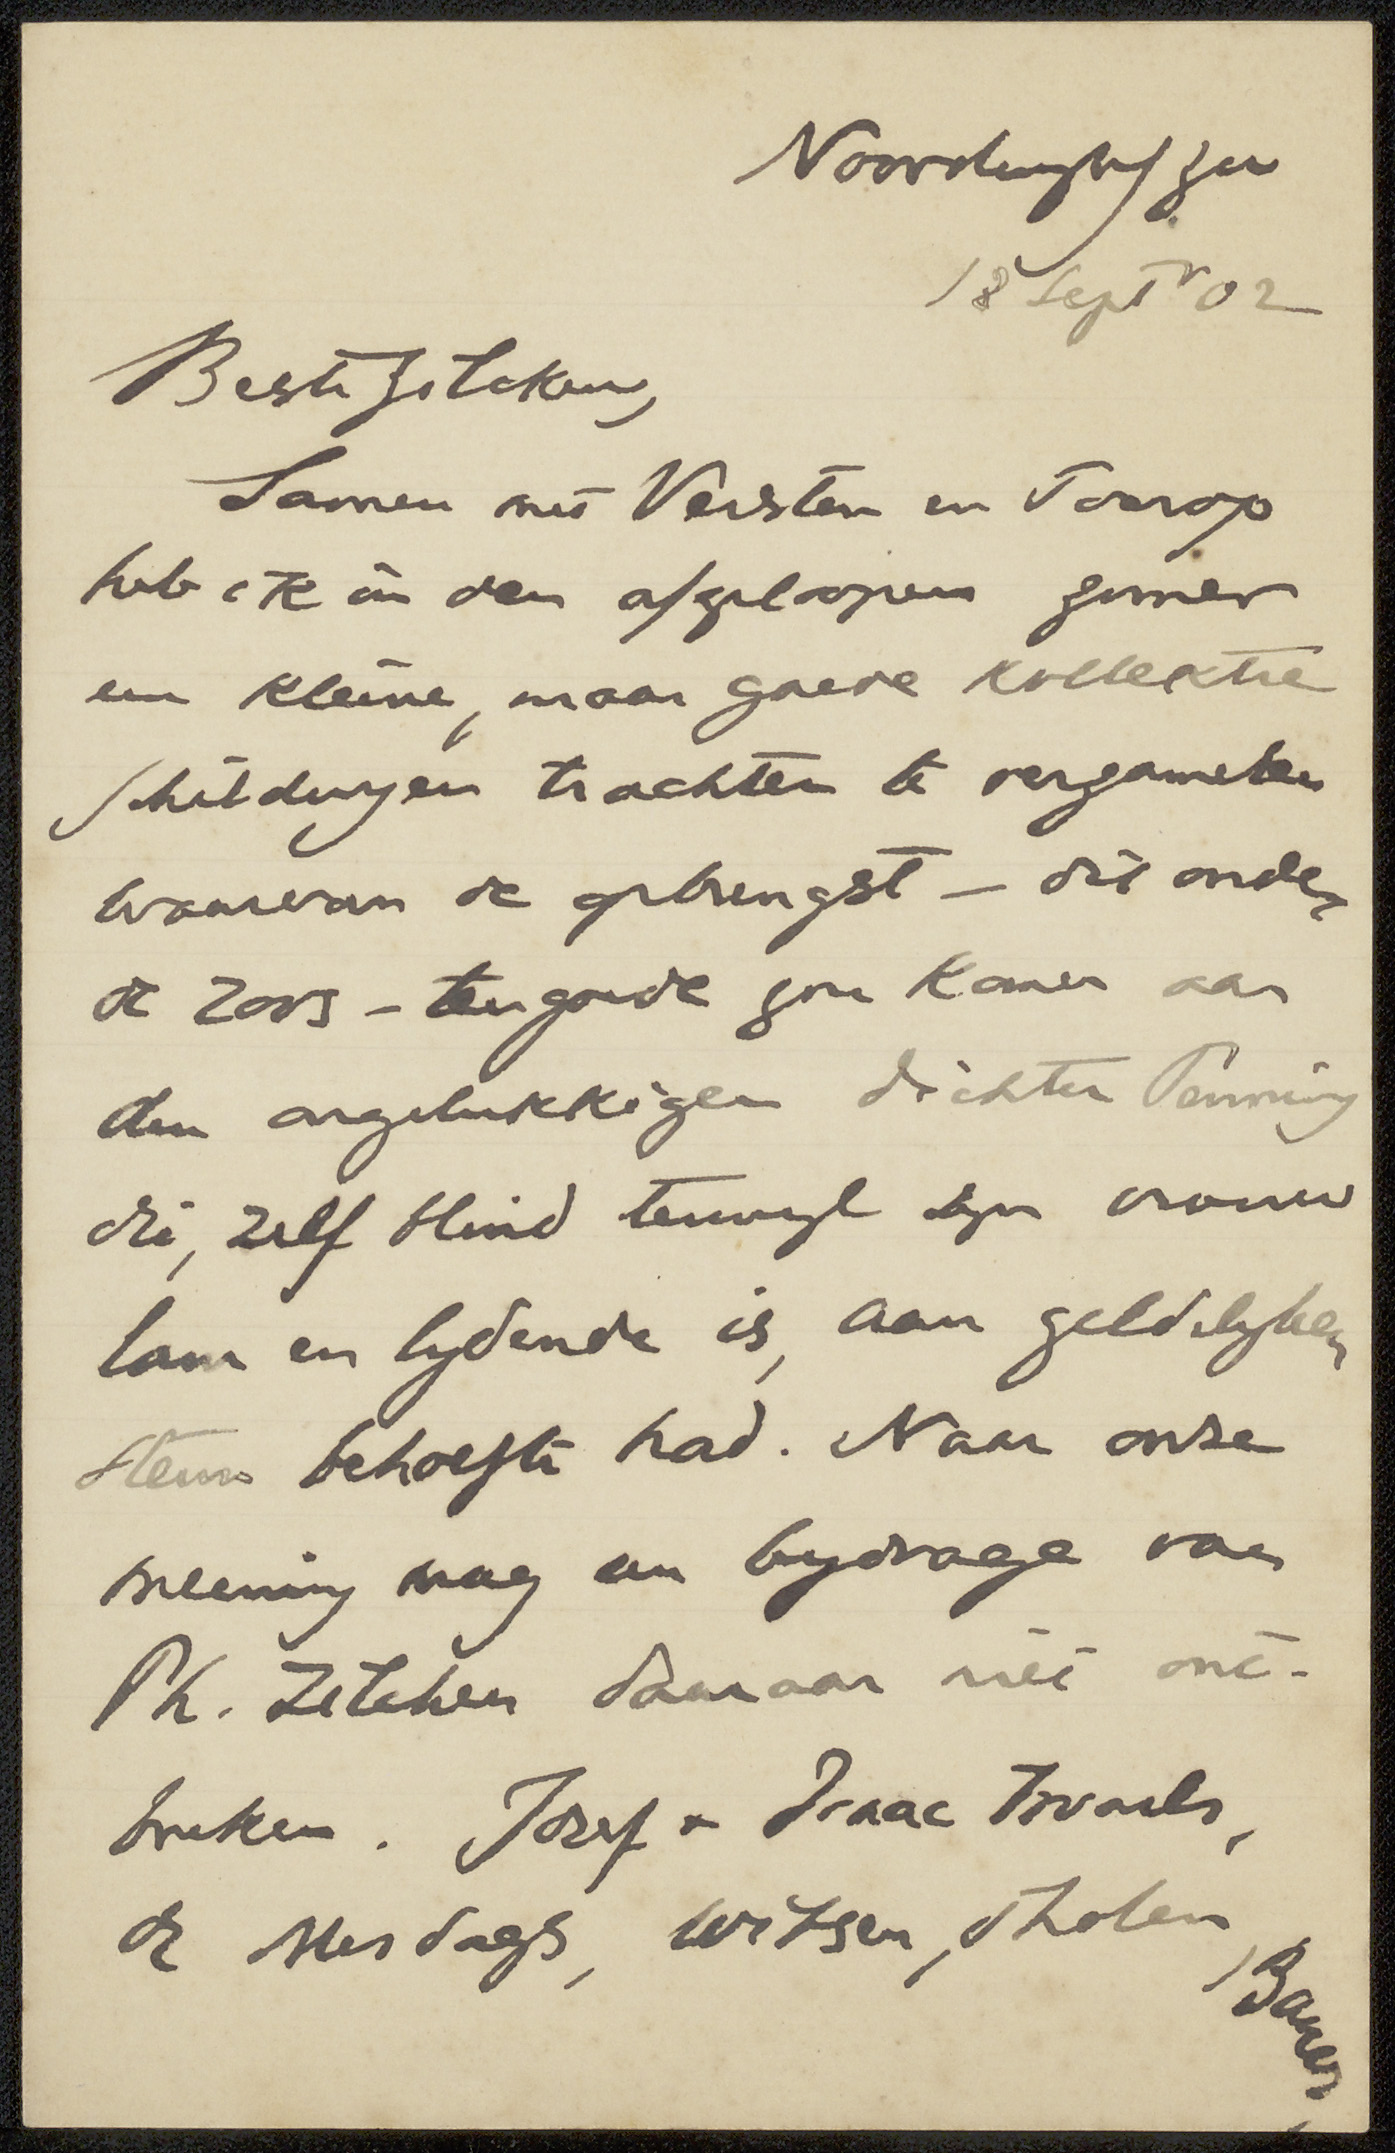 Noordwijk a/ Zee
18 Septr 02
Beste Zilcken,
Samen met Verster en Toorop
heb ik in den afgeloopen zomer
een kleine, maar goede kollektie
schilderyen trachten te verzamelen
waarvan de opbrengst — dit onder
de roos — ten goede zou komen aan
den ongelukkigen dichter Penning
die, zelf blind terwyl zyn vrouw
lam en lydende is, aan geldelyken
steun behoefte had. Naar onze
meening mag een bydrage van
Ph. Zilcken daaraan niet ont-
breken. Jozef & Isaac Israels,
de Mesdags, Witsen, Tholen,
Bauer,